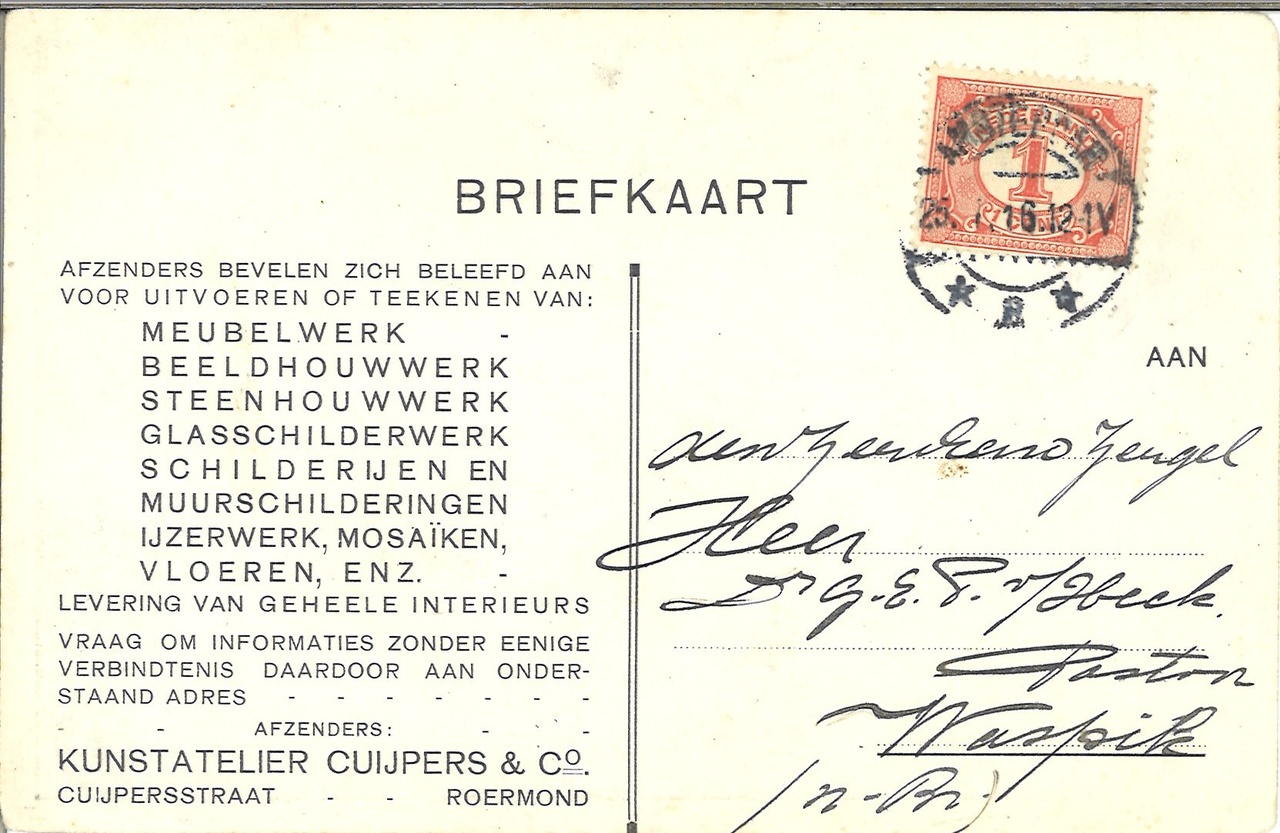 BRIEFKAART
AFZENDERS BEVELEN ZICH BELEEFD AAN
VOOR UITVOEREN OF TEEKENEN VAN:
MEUBELWERK -
BEELDHOUWWERK
STEENHOUWWERK
GLASSCHILDERWERK
SCHILDERIJEN EN
MUURSCHILDERINGEN
IJZERWERK, MOSAÏKEN,
VLOEREN, ENZ. -
LEVERING VAN GEHEELE INTERIEURS
VRAAG OM INFORMATIES ZONDER EENIGE
VERBINDTENIS DAARDOOR AAN ONDER-
STAAND ADRES - - - - - - -
- - AFZENDERS: - -
KUNSTATELIER CUIJPERS & Co.
CUIJPERSSTRAAT - - ROERMOND
1
1 CENT
16.12-1V
AAN
Heer
Dr G. E. P.
Pastoor
Waspik
(n-Br.)